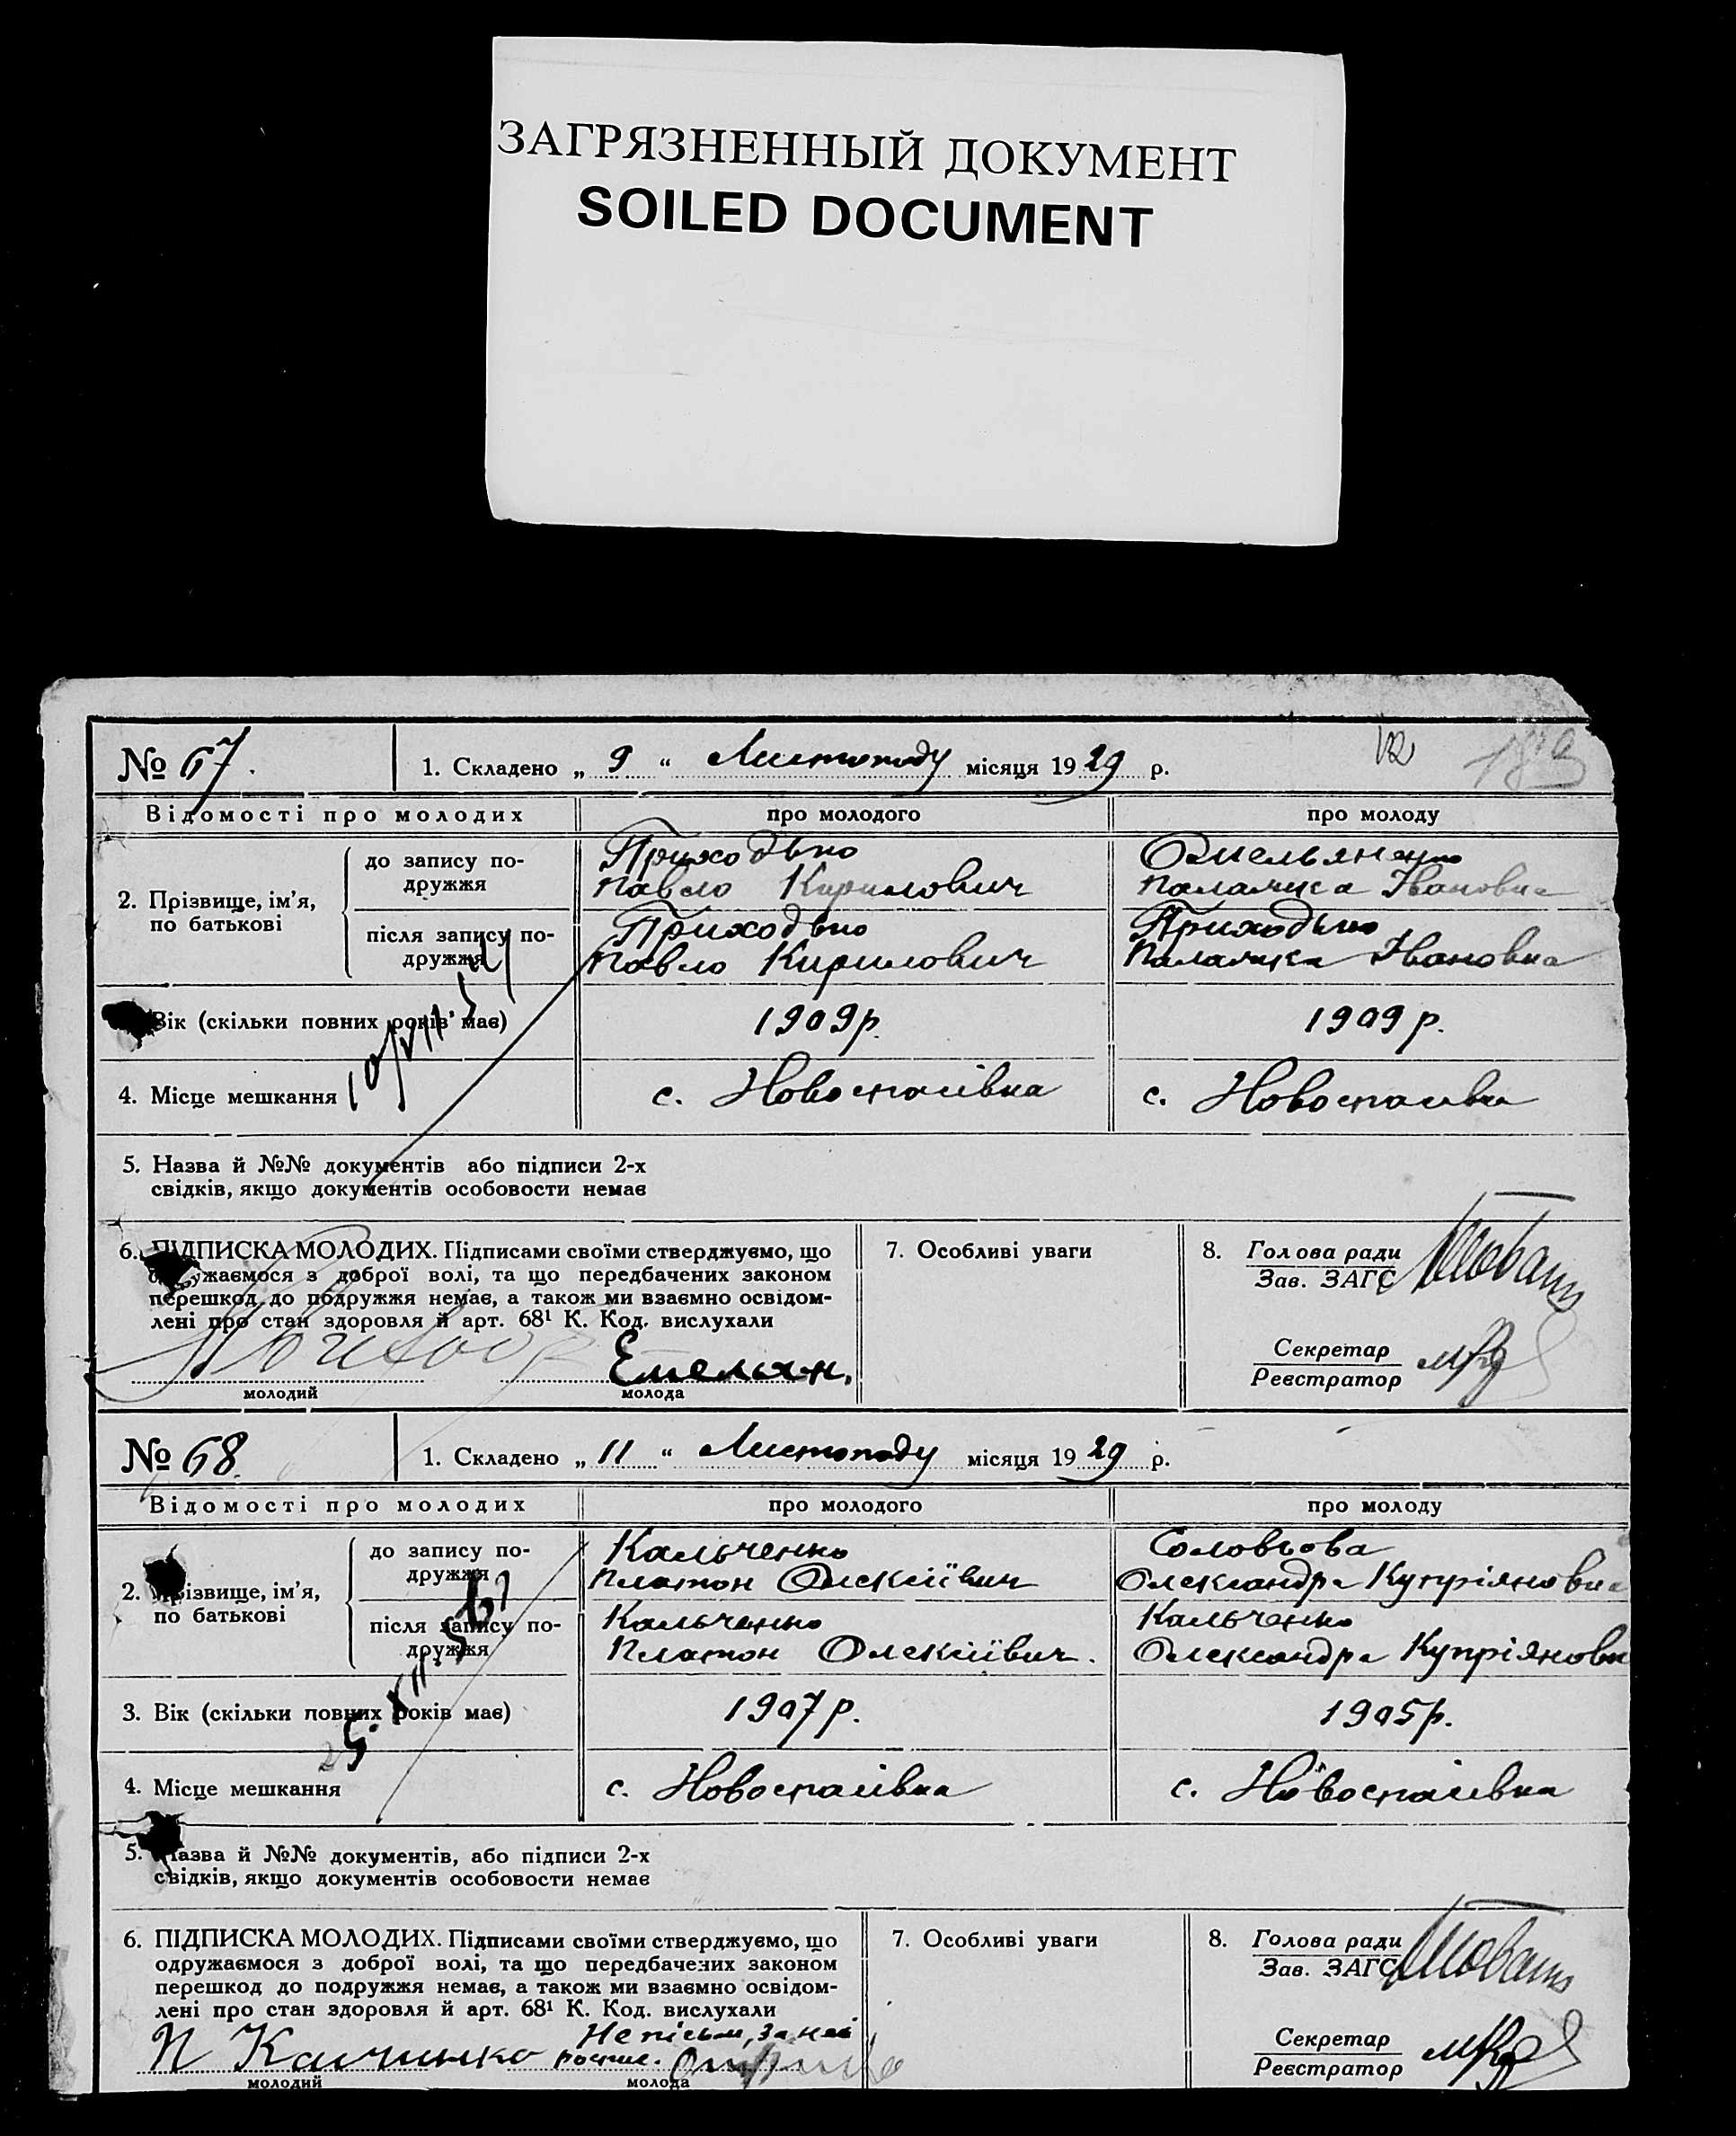 ЗАГРЯЗНЕННЫЙ ДОКУМЕНТ
SOILED DOCUMENT
№ 67.
1. Складено „ 9 “ Листопаду місяця 1929 р.
Відомості про молодих
про молодого
про молоду
2. Прізвище, ім'я, по батькові
до запису по-
дружжя
Приходько
Павло Кирилович
Омельяненко
Палажка Івановна
після запису по-
дружжя
Приходько
Павло Кирилович
Приходько
Палажка Івановна
Вік (скільки повних років має)
1909р.
1909р.
4. Місце мешкання
с. Новоспасівка
с. Новоспасівка
5. Назва й №№ документів або підписи 2-х
свідків, якщо документів особовости немає
6. ПІДПИСКА МОЛОДИХ. Підписами своїми стверджуємо, що
одружаємося з доброї волі, та що передбачених законом
перешкод до подружжя немає, а також ми взаємно освідом-
лені про стан здоровля й арт. 68¹ К. Код. вислухали
Емельян.
молодий
молода
7. Особливі уваги
8. Голова ради
Зав. ЗАГС
Секретар
Реєстратор
№ 68.
1. Складено „ 11 “ Листопаду місяця 1929 р.
Відомості про молодих
про молодого
про молоду
2. Прізвище, ім'я,
по батькові
до запису по-
дружжя
Кальченко
Платон Олексіївич
Соловьова
Олександра Купріяновна
після запису по-
дружжя
Кальченко
Платон Олексіївич.
Кальченко
Олександра Купріяновн
3. Вік (скільки повних років має)
1907р.
1905р.
4. Місце мешкання
с. Новоспасівка
с. Новоспасівка
5. Назва й №№ документів, або підписи 2-х
свідків, якщо документів особовости немає
6. ПІДПИСКА МОЛОДИХ. Підписами своїми стверджуємо, що
одружаємося з доброї волі, та що передбачених законом
перешкод до подружжя немає, а також ми взаємно освідом-
лені про стан здоровля й арт. 68¹ К. Код. вислухали
П Калчинко
Непісьм, за неї
роспис.
молодий
молода
7. Особливі уваги
8. Голова ради
Зав. ЗАГС
Секретар
Реєстратор